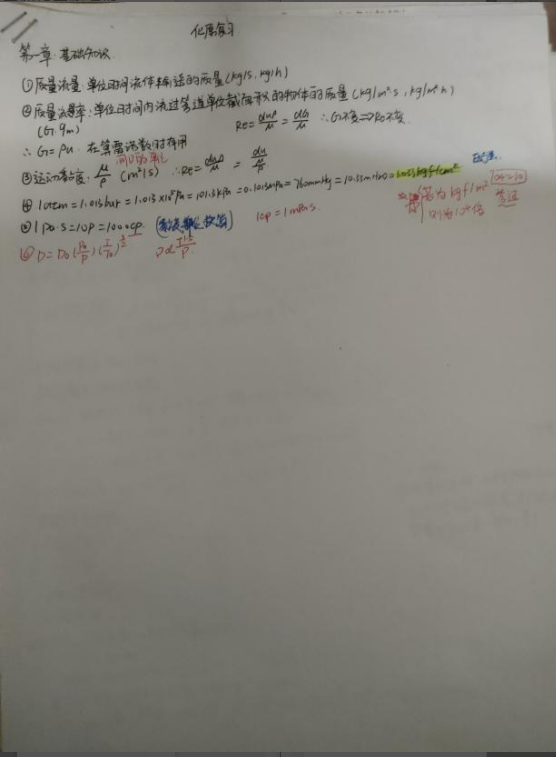 化原复习
第一章 基础知识
①质量流量 单位时间流体输送的质量(kg/s, kg/h)
②质量流率:单位时间内流过管道单位截面积的物体的质量(kg/m²s, kg/m²h)
(G. qm) Re=duρ/μ=dG/μ ∴G不变⇒Re不变
∴G=ρu. 在算雷诺数时有用
③运动粘度: μ/ρ (m²/s) ∴Re=duρ/μ = du/(μ/ρ)
④ 1atm=1.013bar=1.013×10⁵Pa=101.3kPa=0.1013MPa=760mmHg=10.33mH₂O=1.033kgf/cm²
若为kgf/m²
⑤1Pa·s=10P=1000cP 1cP=1mPa·s
⑥D=D₀(P₀/P)(T/T₀)^(3/2)